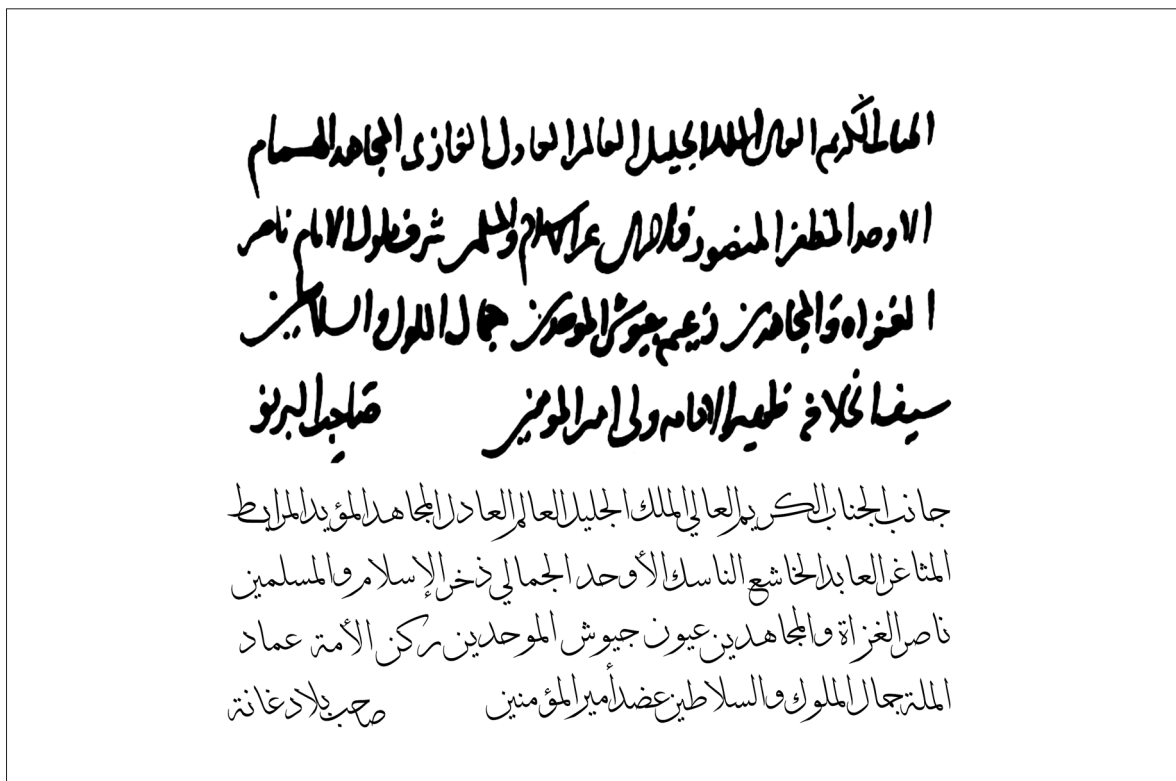 الجناب الكريم العالى الملك الجليل العالم العادل الغازى المجاهد الهمام
الاوحد المظفر المنصور عز الاسلام والمسلمين شرف ملوك الانام ناصر
الغزاه والمجاهدين زعيم جيوش الموحدين جمال الملوك والسلاطين
سيف الخلافة ظهير الامامه ولى امير المومنين صاحب البرنو
جانب الجناب الكريم العالي الملك الجليل العالم العادل المجاهد المؤيد المرابط
المثاغر العابد الخاشع الناسك الأوحد الجمالي ذخر الإسلام والمسلمين
ناصر الغزاة والمجاهدين عيون جيوش الموحدين ركن الأمة عماد
الملة جمال الملوك والسلاطين عضد أمير المؤمنين صحب بلاد غانة